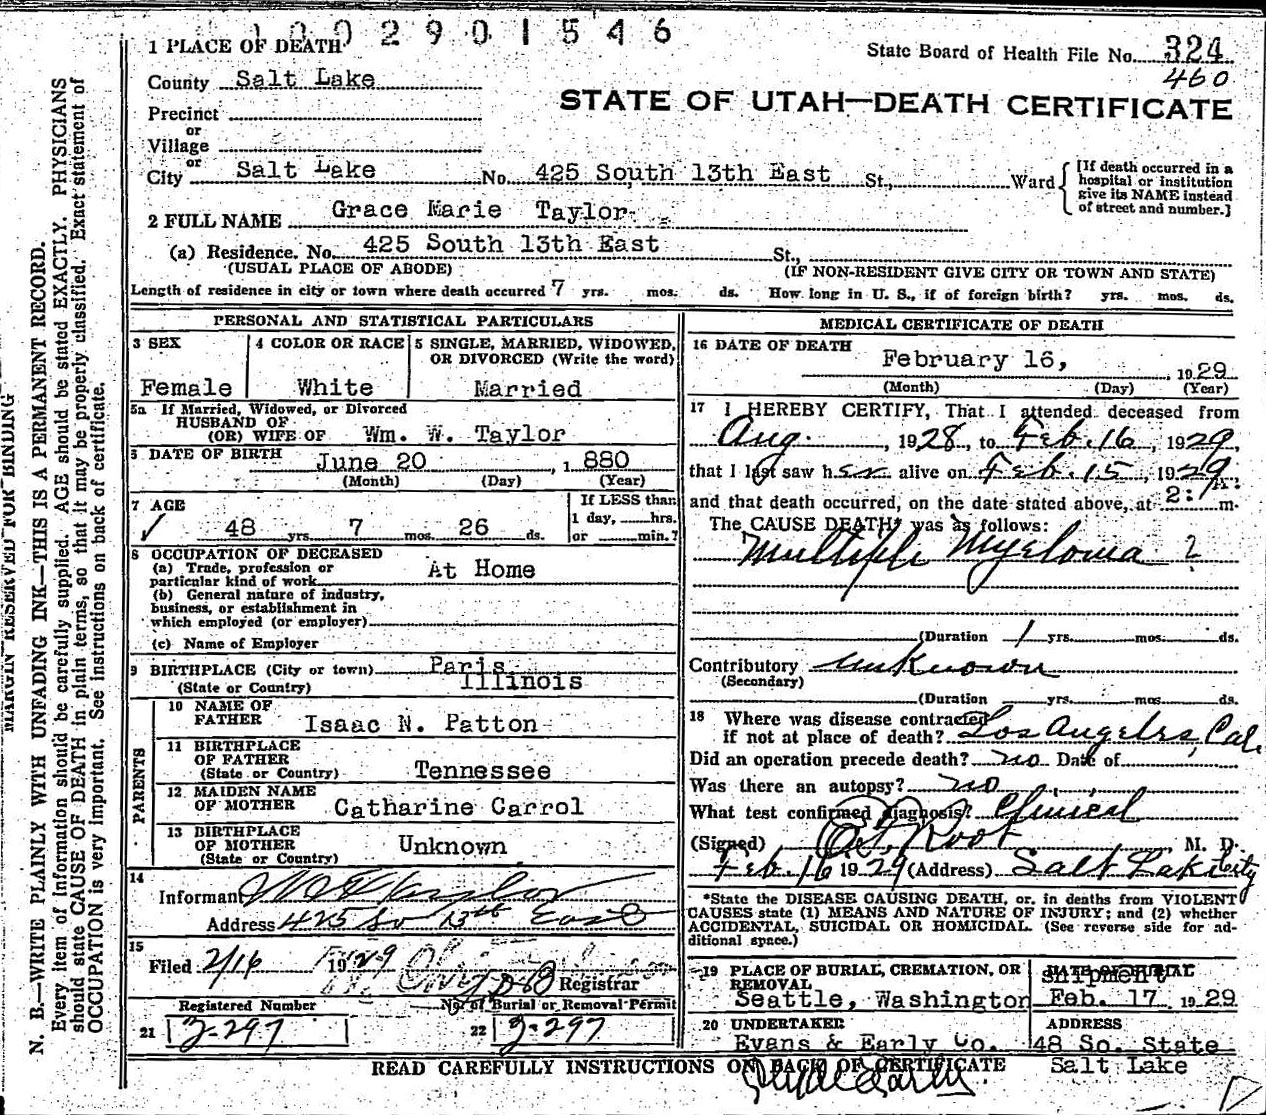 1002901546
1 PLACE OF DEATH
State Board of Health File No. 324
460
County Salt Lake
STATE OF UTAH—DEATH CERTIFICATE
Precinct
or
Village
or
City Salt Lake No. 425 South 13th East St., Ward
[If death occurred in a
hospital or institution
give its NAME instead
of street and number.]
2 FULL NAME Grace Marie Taylor
(a) Residence. No. 425 South 13th East St.,
(USUAL PLACE OF ABODE) (IF NON-RESIDENT GIVE CITY OR TOWN AND STATE)
Length of residence in city or town where death occurred 7 yrs. mos. ds. How long in U. S., if of foreign birth? yrs. mos. ds.
PERSONAL AND STATISTICAL PARTICULARS
3 SEX
Female
4 COLOR OR RACE
White
5 SINGLE, MARRIED, WIDOWED,
OR DIVORCED (Write the word)
Married
5a If Married, Widowed, or Divorced
HUSBAND OF
(OR) WIFE OF Wm. W. Taylor
6 DATE OF BIRTH June 20, 1880
(Month) (Day) (Year)
7 AGE
48 yrs. 7 mos. 26 ds.
If LESS than
1 day, hrs.
or min.?
8 OCCUPATION OF DECEASED
(a) Trade, profession or
particular kind of work At Home
(b) General nature of industry,
business, or establishment in
which employed (or employer)
(c) Name of Employer
9 BIRTHPLACE (City or town) Paris
(State or Country) Illinois
PARENTS
10 NAME OF
FATHER Isaac N. Patton
11 BIRTHPLACE
OF FATHER
(State or Country) Tennessee
12 MAIDEN NAME
OF MOTHER Catharine Carrol
13 BIRTHPLACE
OF MOTHER
(State or Country) Unknown
14
Informant W W Taylor
Address 425 So 13th East
15
Filed 2/16 1929
Registrar
Registered Number
21 Z-297
No. of Burial or Removal Permit
22 Z-297
MEDICAL CERTIFICATE OF DEATH
16 DATE OF DEATH
February 16, 1929
(Month) (Day) (Year)
17 I HEREBY CERTIFY, That I attended deceased from
Aug. , 1928, to Feb. 16 , 1929,
that I last saw her alive on Feb. 15 , 1929
and that death occurred, on the date stated above, at 2: m.
The CAUSE DEATH was as follows:
Multiple Myeloma ?
(Duration 1 yrs. mos. ds.
Contributory unknown
(Secondary)
(Duration yrs. mos. ds.
18 Where was disease contracted
if not at place of death? Los Angeles, Cal.
Did an operation precede death? no Date of
Was there an autopsy? no
What test confirmed diagnosis? Clinical
(Signed) Root , M. D.
Feb. 16 1929 (Address) Salt Lake City
*State the DISEASE CAUSING DEATH, or, in deaths from VIOLENT
CAUSES state (1) MEANS AND NATURE OF INJURY; and (2) whether
ACCIDENTAL, SUICIDAL OR HOMICIDAL. (See reverse side for ad-
ditional space.)
19 PLACE OF BURIAL, CREMATION, OR
REMOVAL
Seattle, Washington
DATE OF BURIAL
shipment
Feb. 17 1929
20 UNDERTAKER
Evans & Early Co.
ADDRESS
48 So. State
Salt Lake
READ CAREFULLY INSTRUCTIONS ON BACK OF CERTIFICATE
MARGIN RESERVED FOR BINDING
N. B.—WRITE PLAINLY WITH UNFADING INK—THIS IS A PERMANENT RECORD.
Every item of information should be carefully supplied. AGE should be stated EXACTLY. PHYSICIANS
should state CAUSE OF DEATH in plain terms, so that it may be properly classified. Exact statement of
OCCUPATION is very important. See instructions on back of certificate.